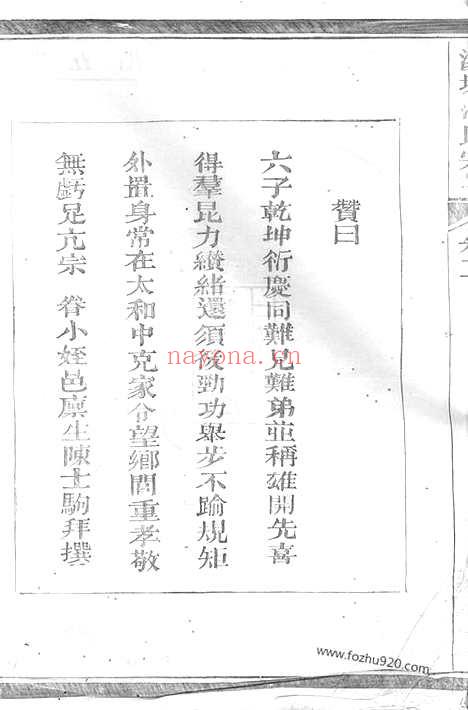 贊曰
六子乾坤衍慶同難兄難弟並稱雄開先喜
得羣昆力纘緒還須後勁功舉步不踰規矩
外置身常在太和中克家令望鄉閭重孝敬
無虧足亢宗 眷小姪邑廩生陳士駒拜撰
nayona.cn
www.fozhu920.com